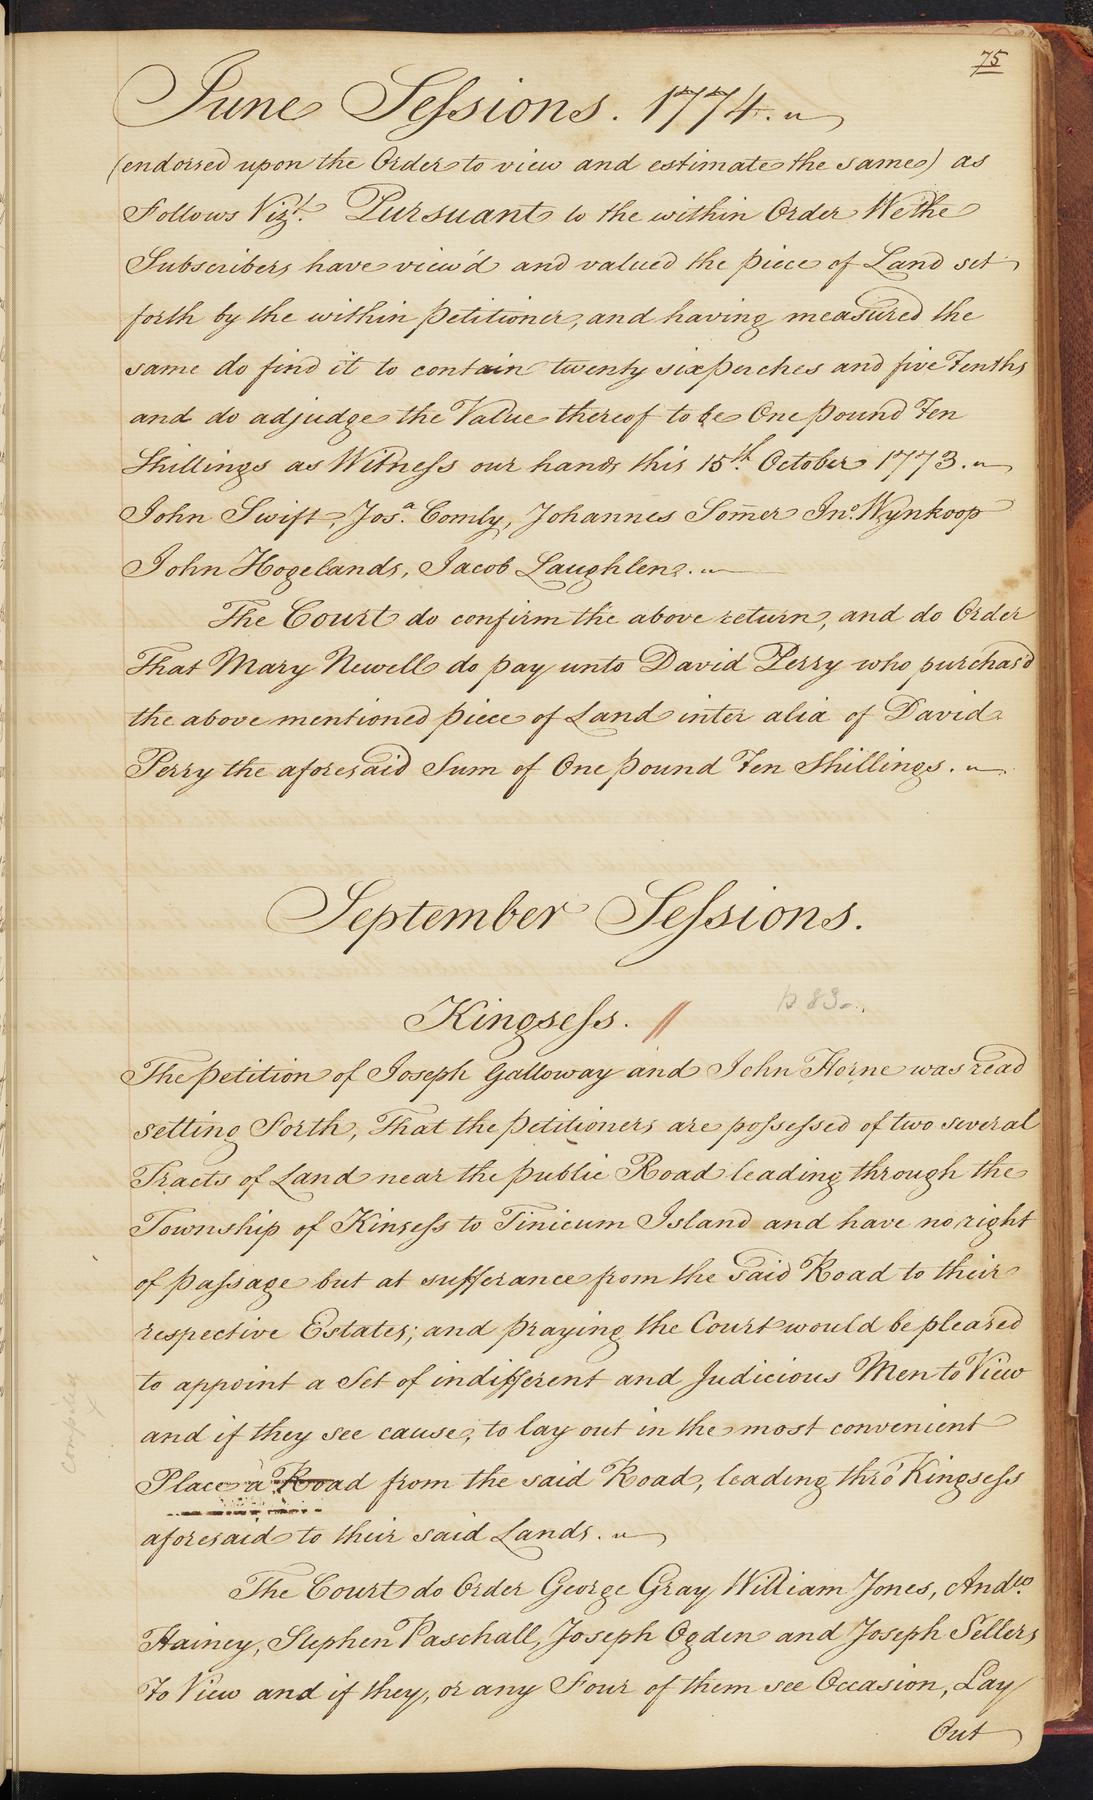 75
June Sessions. 1774.
(endorsed upon the Order to view and estimate the same) as
Follows Vizt. Pursuant to the within Order We the
Subscribers have view'd and valued the piece of Land set
forth by the within petitioner, and having measured the
same do find it to contain twenty six perches and five Tenths
and do adjudge the Value thereof to be One pound Ten
Shillings as Witness our hands this 15th. October 1773.
John Swift, Josa. Comly, Johannes Som̅er Jno. Wynkoop
John Hogelands, Jacob Laughlen.
The Court do confirm the above return, and do Order
That Mary Newell do pay unto David Perry who purchas'd
the above mentioned piece of Land inter alia of David
Perry the aforesaid Sum of One pound Ten Shillings.
September Sessions.
Kingsess. //
p 83
The petition of Joseph Galloway and John Horne was read
setting Forth, That the petitioners are possessed of two several
Tracts of Land near the public Road leading through the
Township of Kinsess to Tinicum Island and have no right
of passage but at sufferance from the said Road to their
respective Estates; and praying the Court would be pleased
to appoint a Set of indifferent and Judicious Men to View
and if they see cause, to lay out in the most convenient
Place a Road from the said Road, leading thro' Kingsess
aforesaid to their said Lands.
The Court do Order George Gray William Jones, Andw.
Hainey, Stephen Paschall, Joseph Ogden and Joseph Sellers
To View and if they, or any Four of them see Occasion, Lay
Out